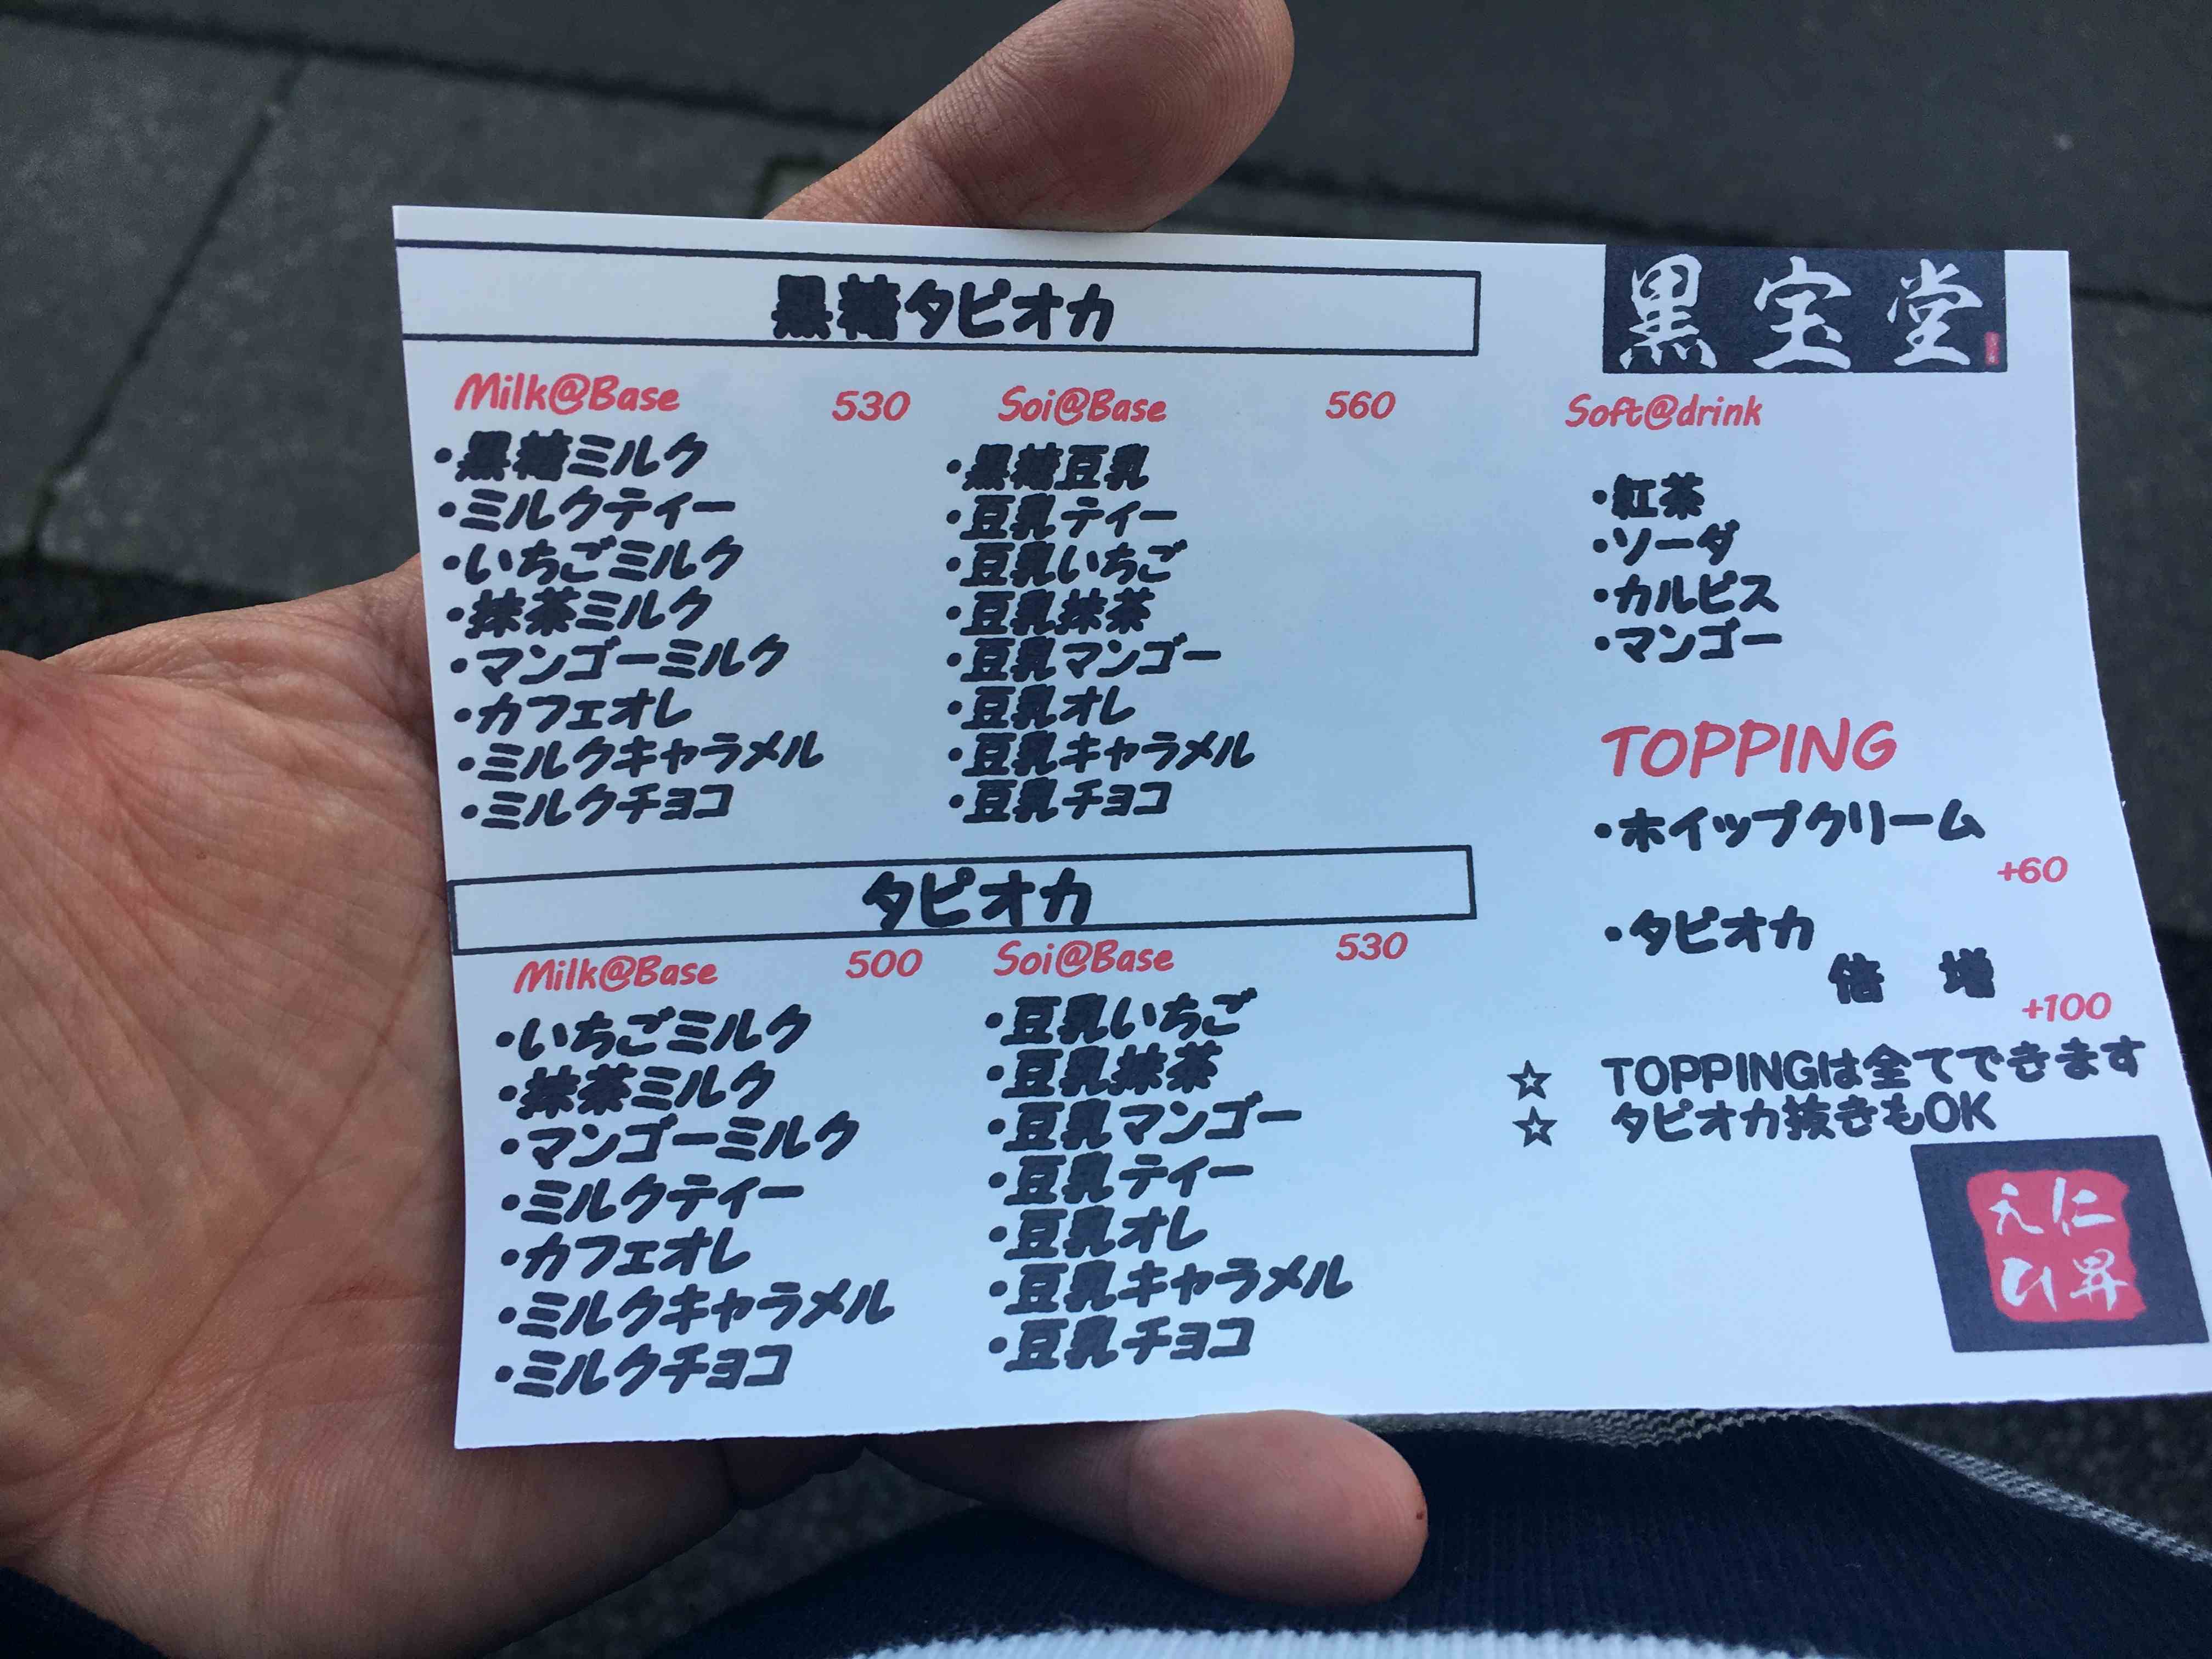 黒糖タピオカ
Milk@Base 530
・黒糖ミルク
・ミルクティー
・いちごミルク
・抹茶ミルク
・マンゴーミルク
・カフェオレ
・ミルクキャラメル
・ミルクチョコ
Soi@Base 560
・黒糖豆乳
・豆乳ティー
・豆乳いちご
・豆乳抹茶
・豆乳マンゴー
・豆乳オレ
・豆乳キャラメル
・豆乳チョコ
タピオカ
Milk@Base 500
・いちごミルク
・抹茶ミルク
・マンゴーミルク
・ミルクティー
・カフェオレ
・ミルクキャラメル
・ミルクチョコ
Soi@Base 530
・豆乳いちご
・豆乳抹茶
・豆乳マンゴー
・豆乳ティー
・豆乳オレ
・豆乳キャラメル
・豆乳チョコ
黒宝堂
Soft@drink
・紅茶
・ソーダ
・カルピス
・マンゴー
TOPPING
・ホイップクリーム
+60
・タピオカ
倍 増
+100
☆ TOPPINGは全てできます
☆ タピオカ抜きもOK
仁昇
えひ